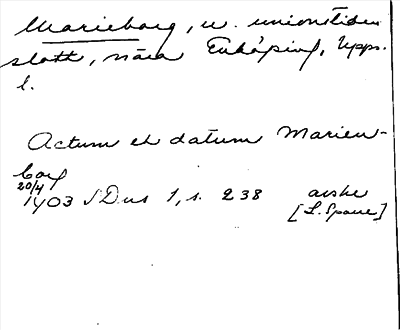 Marieborg, u. unionstidens
slott, nära Enköping, Upps.
l.
Actum et datum Marien-
borg
20/4
1403 SDns 1, s. 238 avskr
[L. Sparre]